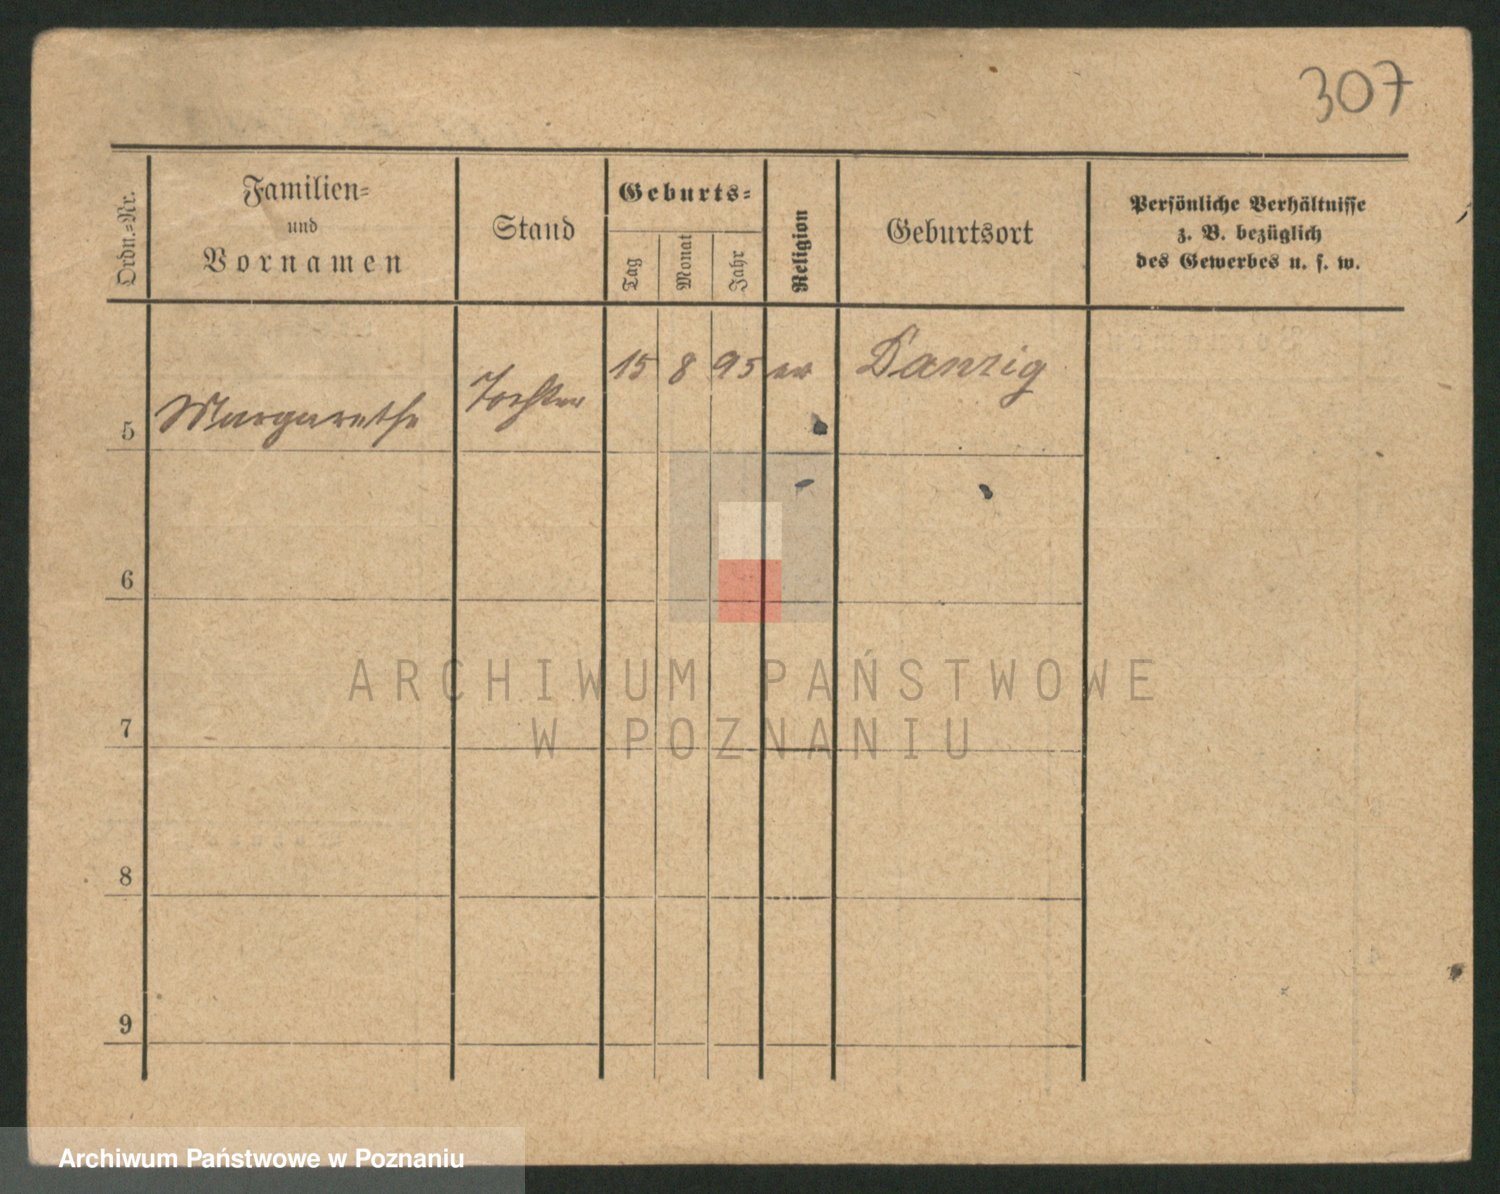 307
Ordn.-Nr.
Familien-
und
Vornamen
Stand
Geburts-
Tag
Monat
Jahr
Religion
Geburtsort
Persönliche Verhältnisse
z. B. bezüglich
des Gewerbes u. s. w.
5 Margarethe Tochter 15 8 95 ev Danzig
6
7
8
9
ARCHIWUM PAŃSTWOWE
W POZNANIU
Archiwum Państwowe w Poznaniu